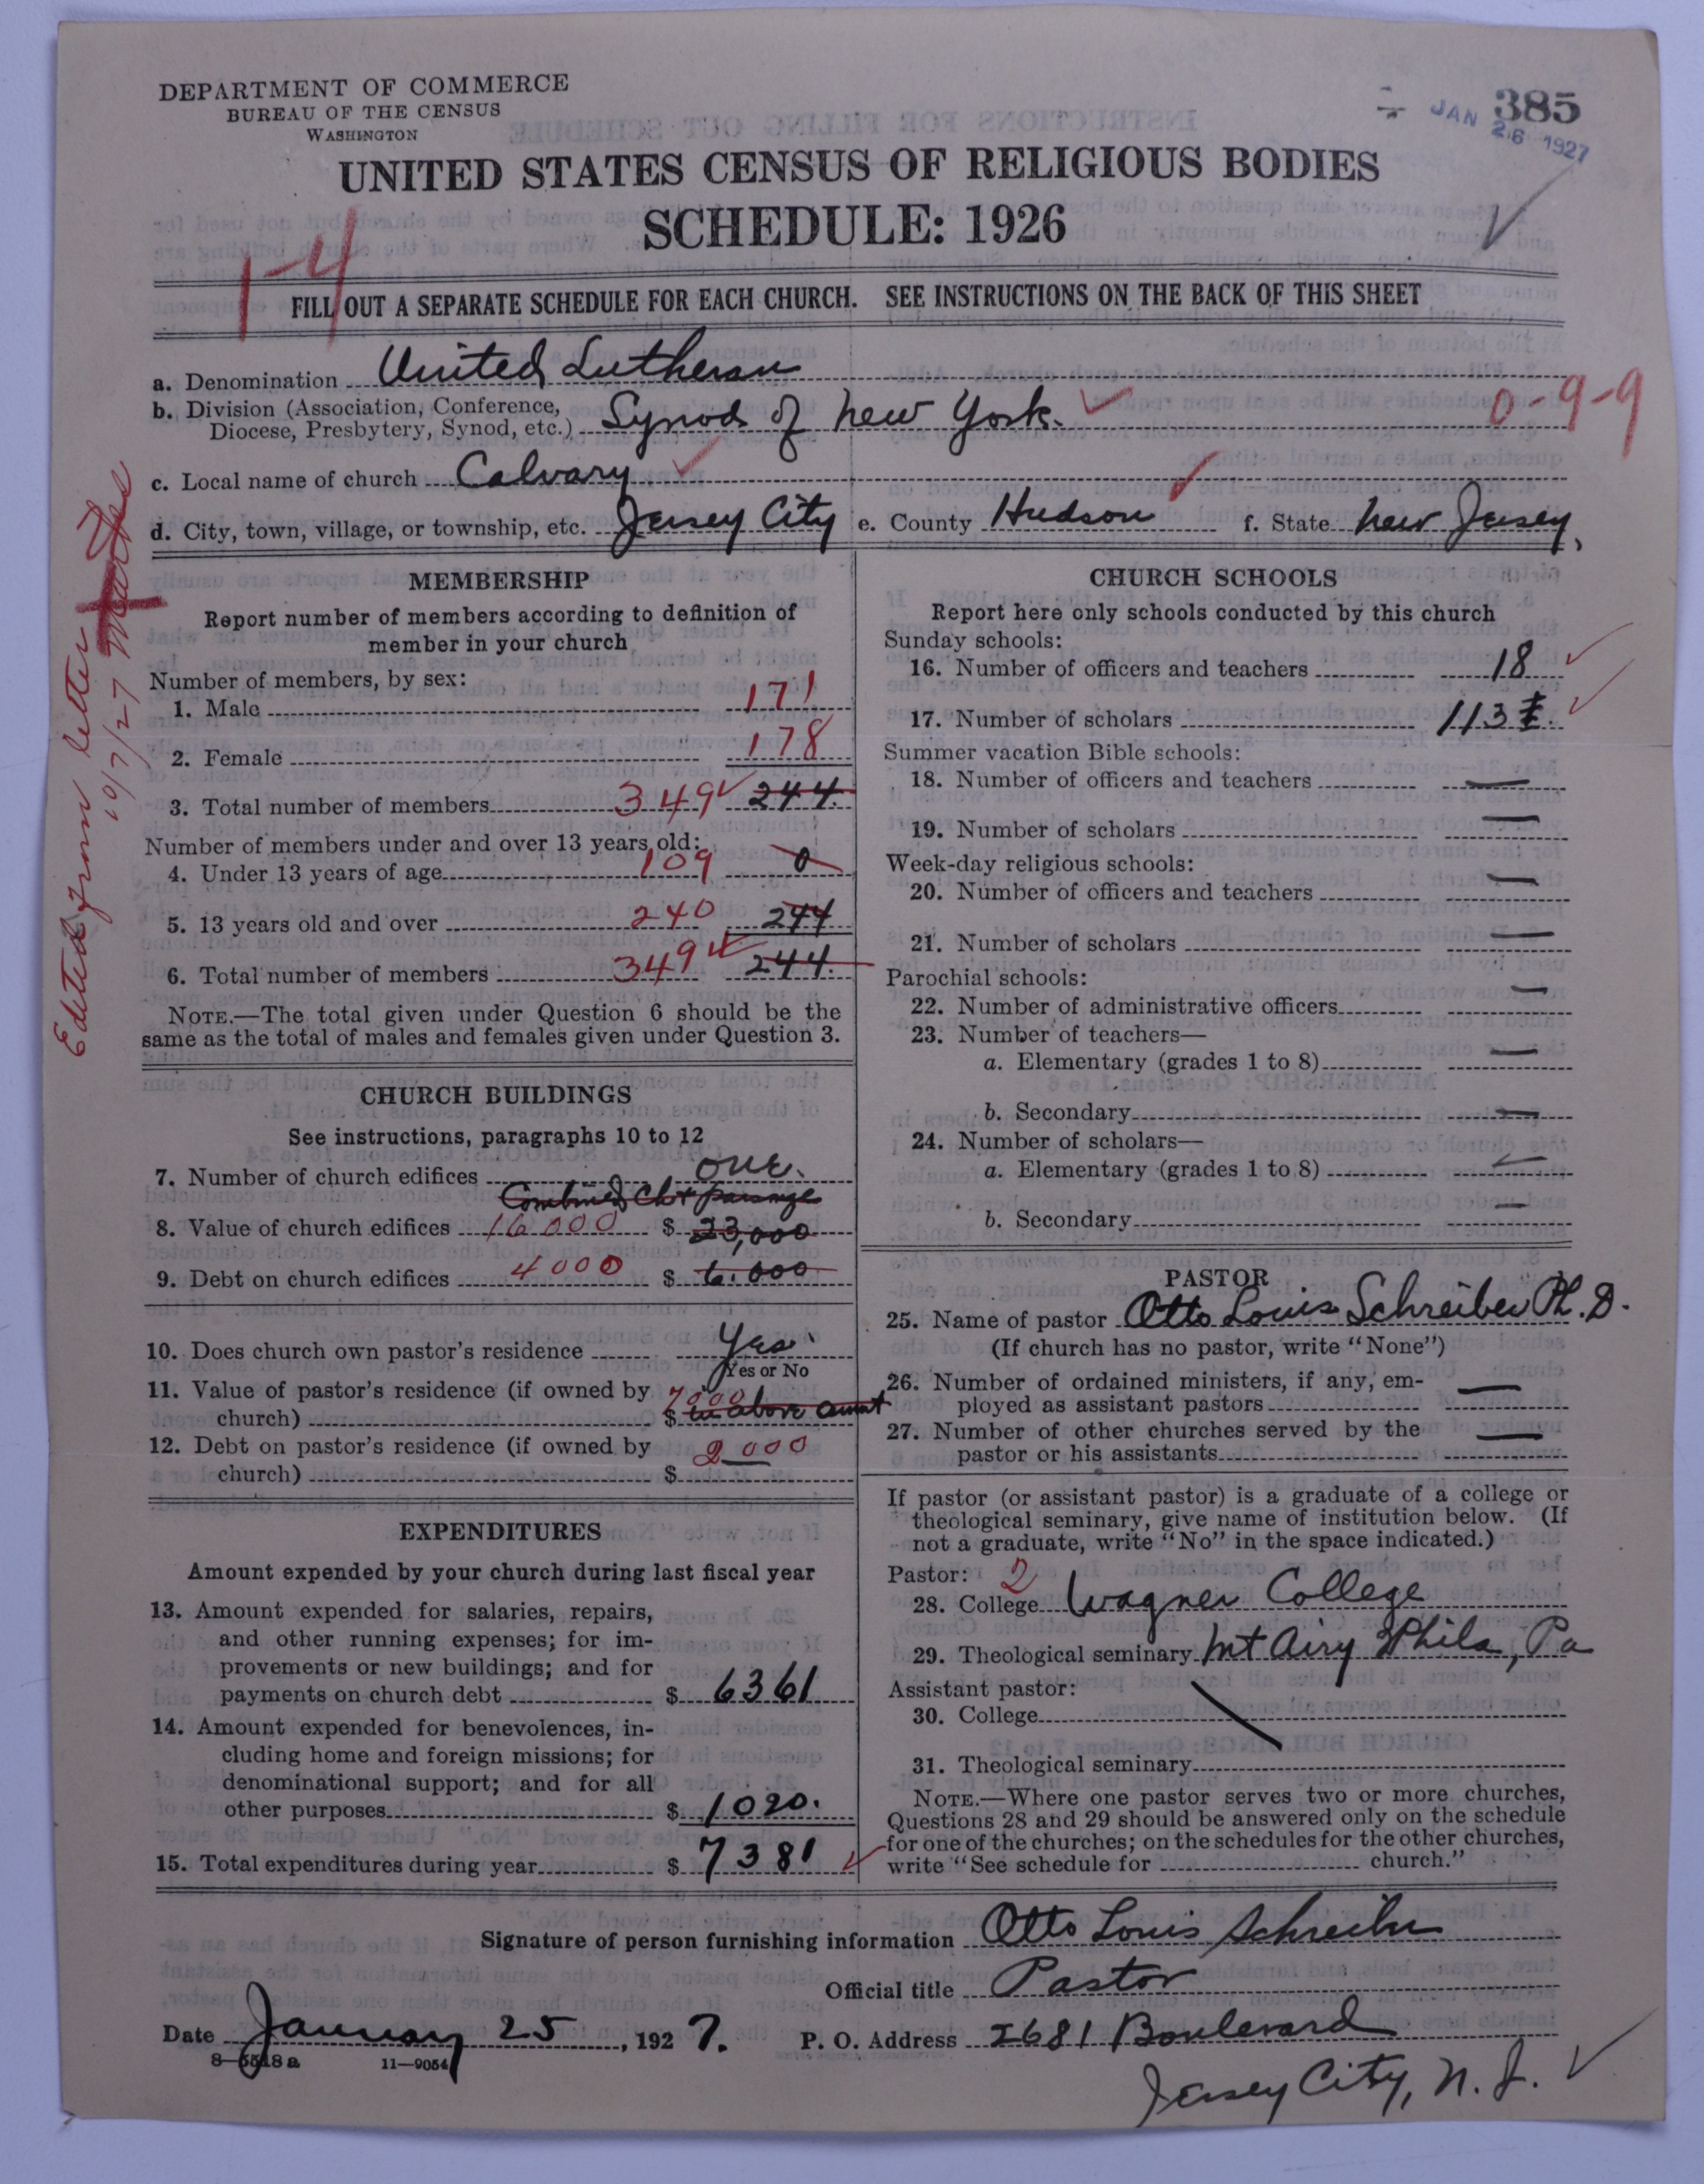 DEPARTMENT OF COMMERCE
BUREAU OF THE CENSUS
WASHINGTON
385
JAN 26 1927
UNITED STATES CENSUS OF RELIGIOUS BODIES
SCHEDULE: 1926
1-4
FILL OUT A SEPARATE SCHEDULE FOR EACH CHURCH. SEE INSTRUCTIONS ON THE BACK OF THIS SHEET
a. Denomination United Lutheran
b. Division (Association, Conference,
Diocese, Presbytery, Synod, etc.) Synod of New York. 0-9-9
c. Local name of church Calvary
d. City, town, village, or township, etc. Jersey City e. County Hudson f. State New Jersey.
Edited from letter
10/7/27
MEMBERSHIP
Report number of members according to definition of
member in your church
Number of members, by sex:
1. Male 171
2. Female 178
3. Total number of members 349 244.
Number of members under and over 13 years old:
4. Under 13 years of age 109 0
5. 13 years old and over 240 244
6. Total number of members 349 244.
NOTE.—The total given under Question 6 should be the
same as the total of males and females given under Question 3.
CHURCH BUILDINGS
See instructions, paragraphs 10 to 12
7. Number of church edifices one.
Combined Ch & parsonage
8. Value of church edifices 16000 $ 23,000
9. Debt on church edifices 4000 $ 6.000
10. Does church own pastor's residence Yes
Yes or No
11. Value of pastor's residence (if owned by 7000
church) $ in above amnt
12. Debt on pastor's residence (if owned by 2000
church) $
EXPENDITURES
Amount expended by your church during last fiscal year
13. Amount expended for salaries, repairs,
and other running expenses; for im-
provements or new buildings; and for
payments on church debt $ 6361
14. Amount expended for benevolences, in-
cluding home and foreign missions; for
denominational support; and for all
other purposes $ 1020.
15. Total expenditures during year $ 7381
CHURCH SCHOOLS
Report here only schools conducted by this church
Sunday schools:
16. Number of officers and teachers 18
17. Number of scholars 113
Summer vacation Bible schools:
18. Number of officers and teachers —
19. Number of scholars —
Week-day religious schools:
20. Number of officers and teachers —
21. Number of scholars —
Parochial schools:
22. Number of administrative officers —
23. Number of teachers—
a. Elementary (grades 1 to 8) —
b. Secondary —
24. Number of scholars—
a. Elementary (grades 1 to 8) —
b. Secondary —
PASTOR
25. Name of pastor Otto Louis Schreiber Ph. D.
(If church has no pastor, write "None")
26. Number of ordained ministers, if any, em-
ployed as assistant pastors —
27. Number of other churches served by the
pastor or his assistants —
If pastor (or assistant pastor) is a graduate of a college or
theological seminary, give name of institution below. (If
not a graduate, write "No" in the space indicated.)
Pastor: 2
28. College Wagner College
29. Theological seminary Mt Airy Phila, Pa
Assistant pastor:
30. College
31. Theological seminary
NOTE.—Where one pastor serves two or more churches,
Questions 28 and 29 should be answered only on the schedule
for one of the churches; on the schedules for the other churches,
write "See schedule for church."
Signature of person furnishing information Otto Louis Schreiber
Official title Pastor
Date January 25, 1927. P. O. Address 2681 Boulevard
8-5518a 11-9054
Jersey City, N. J.